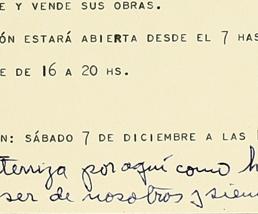 E Y VENDE SUS OBRAS.
ÓN ESTARÁ ABIERTA DESDE EL 7 HAS
E DE 16 A 20 HS.
N: SÁBADO 7 DE DICIEMBRE A LAS
por aquí como h
ser de nosotros y siem